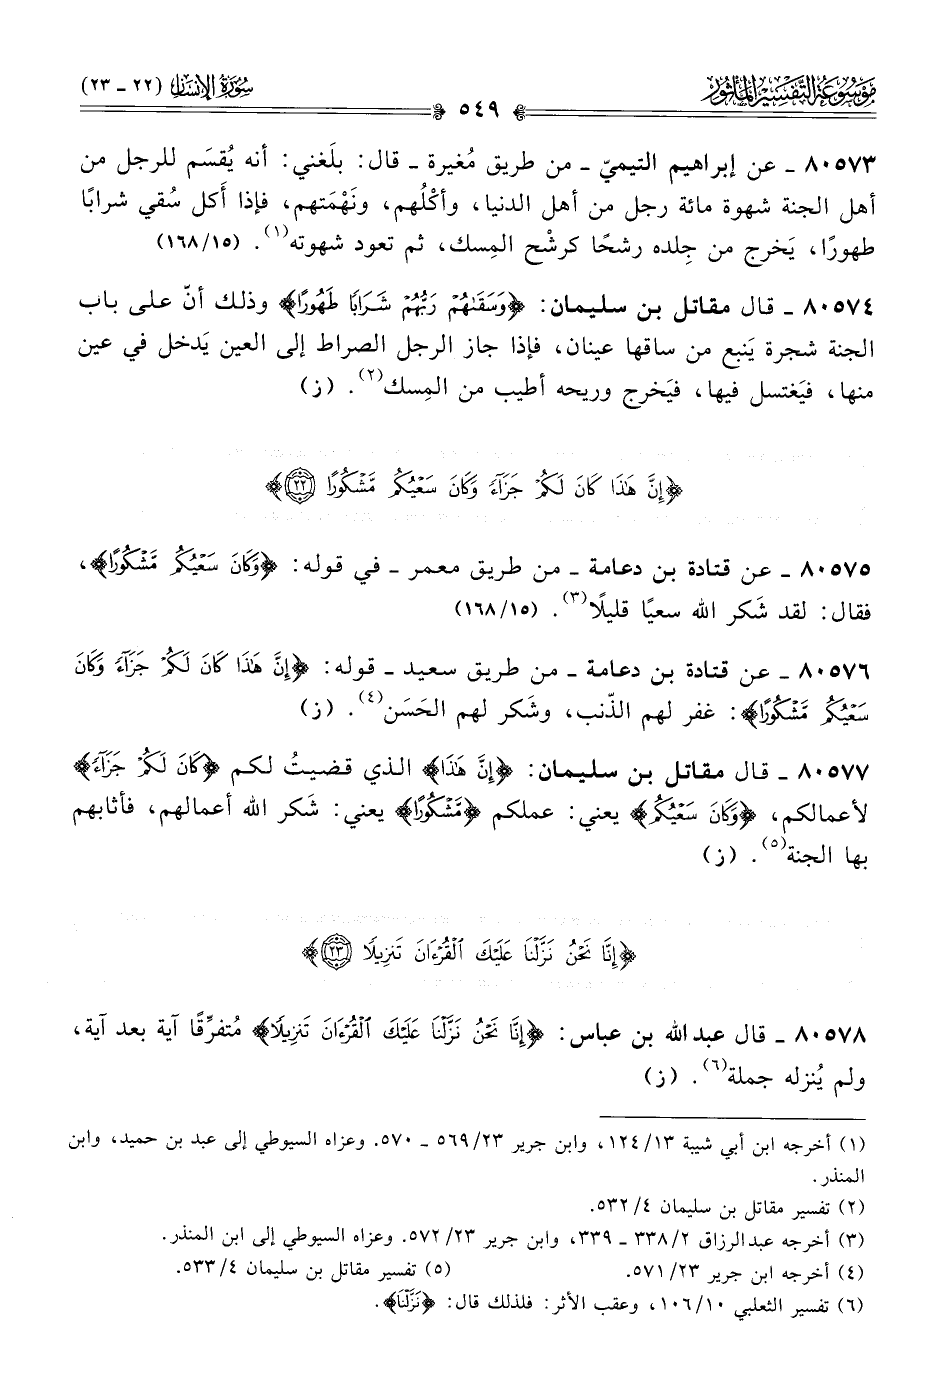 موسوعة التفسير المأثور
سورة الإنسان (٢٢ - ٢٣)
٥٤٩
٨٠٥٧٣ ـ عن إبراهيم التيميّ ـ من طريق مُغيرة ـ قال: بلَغني: أنه يُقسَم للرجل من
أهل الجنة شهوة مائة رجل من أهل الدنيا، وأكْلُهم، ونَهْمَتهم، فإذا أكل سُقي شرابًا
طهورًا، يَخرج من جِلده رشحًا كرشْح المِسك، ثم تعود شهوته(١). (١٥/ ١٦٨)
٨٠٥٧٤ ـ قال مقاتل بن سليمان: ﴿وَسَقَىٰهُمْ رَبُّهُمْ شَرَابًا طَهُورًا﴾ وذلك أنّ على باب
الجنة شجرة يَنبع من ساقها عينان، فإذا جاز الرجل الصراط إلى العين يَدخل في عين
منها، فيَغتسل فيها، فيَخرج وريحه أطيب من المِسك(٢). (ز)
﴿إِنَّ هَٰذَا كَانَ لَكُمْ جَزَآءً وَكَانَ سَعْيُكُم مَّشْكُورًا ۝٢٢﴾
٨٠٥٧٥ ـ عن قتادة بن دعامة ـ من طريق معمر ـ في قوله: ﴿وَكَانَ سَعْيُكُم مَّشْكُورًا﴾،
فقال: لقد شَكر الله سعيًا قليلًا(٣). (١٥/ ١٦٨)
٨٠٥٧٦ ـ عن قتادة بن دعامة ـ من طريق سعيد ـ قوله: ﴿إِنَّ هَٰذَا كَانَ لَكُمْ جَزَآءً وَكَانَ
سَعْيُكُم مَّشْكُورًا﴾: غفر لهم الذّنب، وشَكر لهم الحَسَن(٤). (ز)
٨٠٥٧٧ ـ قال مقاتل بن سليمان: ﴿إِنَّ هَٰذَا﴾ الذي قضيتُ لكم ﴿كَانَ لَكُمْ جَزَآءً﴾
لأعمالكم، ﴿وَكَانَ سَعْيُكُم﴾ يعني: عملكم ﴿مَّشْكُورًا﴾ يعني: شَكر الله أعمالهم، فأثابهم
بها الجنة(٥). (ز)
﴿إِنَّا نَحْنُ نَزَّلْنَا عَلَيْكَ ٱلْقُرْءَانَ تَنزِيلًا ۝٢٣﴾
٨٠٥٧٨ ـ قال عبد الله بن عباس: ﴿إِنَّا نَحْنُ نَزَّلْنَا عَلَيْكَ ٱلْقُرْءَانَ تَنزِيلًا﴾ مُتفرِّقًا آية بعد آية،
ولم يُنزله جملة(٦). (ز)
(١) أخرجه ابن أبي شيبة ١٣/ ١٢٤، وابن جرير ٢٣/ ٥٦٩ ـ ٥٧٠. وعزاه السيوطي إلى عبد بن حميد، وابن
المنذر.
(٢) تفسير مقاتل بن سليمان ٤/ ٥٣٢.
(٣) أخرجه عبد الرزاق ٢/ ٣٣٨ ـ ٣٣٩، وابن جرير ٢٣/ ٥٧٢. وعزاه السيوطي إلى ابن المنذر.
(٤) أخرجه ابن جرير ٢٣/ ٥٧١. (٥) تفسير مقاتل بن سليمان ٤/ ٥٣٣.
(٦) تفسير الثعلبي ١٠/ ١٠٦، وعقب الأثر: فلذلك قال: ﴿نَزَّلْنَا﴾.